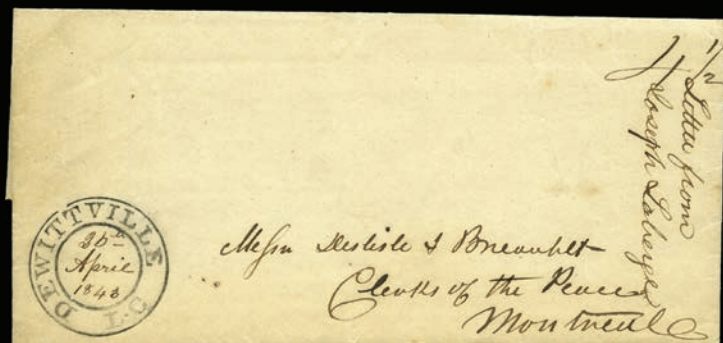 1/2
Letter from
Joseph Laberge
DEWITTVILLE
April
1843
L.C
Messrs Delisle & Breaubelt
Clerks of the Peace
Montreal